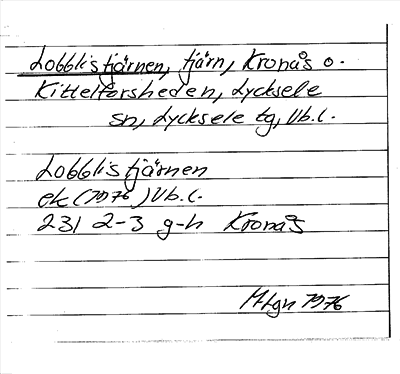 Lobblistjärnen, tjärn, Kronås o.
Kittelforsheden, Lycksele
sn, Lycksele tg, Vb.l.
Lobblistjärnen
ek (1976) Vb.l.
231 2-3 g-h Kronås
1976